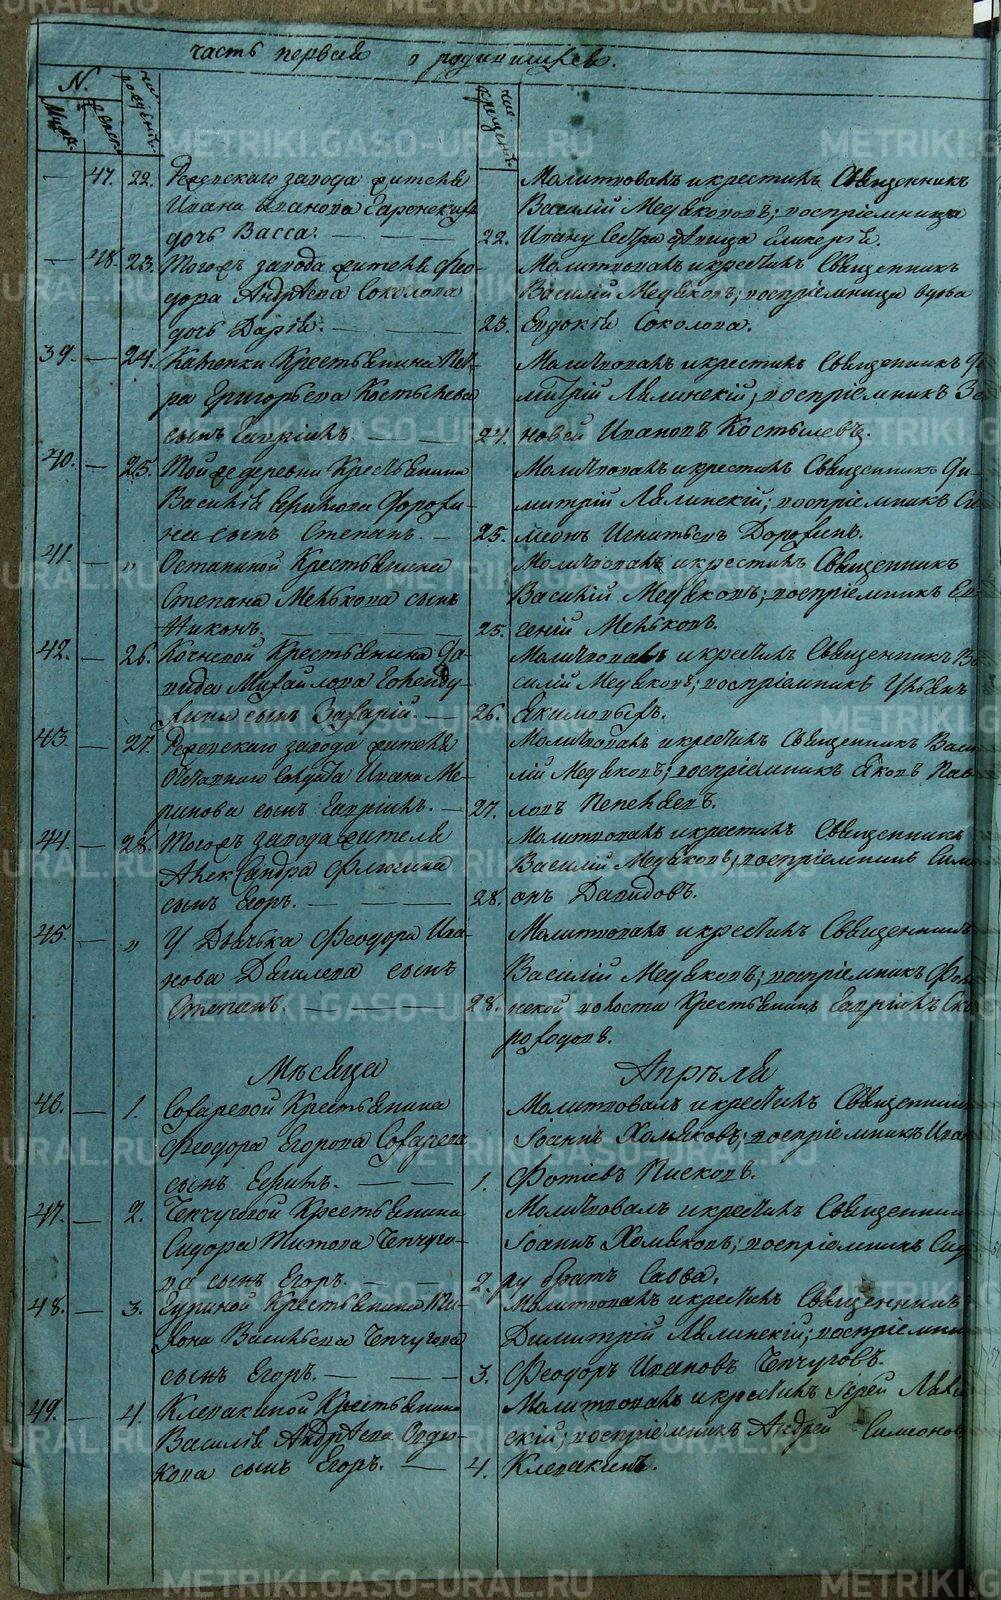 часть первая о родившихся.
N.
Муж. Женс. Чис. рожден. Чис. крещен.
— 47. 22. Режевскаго завода жителя
Ивана Иванова
дочь Васса. —
Молитвовалъ и крестилъ Священникъ
Василій Медяковъ; воспріемница
22. Ивану сестра девица Гликерія.
— 48. 23. Тогожъ завода жителя Фео-
дора Андрѣева Соколова
дочь Дарія. —
Молитвовалъ и крестилъ Священникъ
Василій Медяковъ; воспріемница вдова
23. Евдокія Соколова.
39. — 24. Крестьянина Пет-
ра Григорьева Костылева
сынъ Гавріилъ. —
Молитвовалъ и крестилъ Священникъ Ди-
митрій Лялинскій; воспріемникъ Зе-
24. новей Ивановъ Костылевъ.
40. — 25. Той же деревни Крестьянина
Василія Дорофи-
на сынъ Степанъ. —
Молитвовалъ и крестилъ Священникъ Ди-
митрій Лялинскій; воспріемникъ Си-
25. меонъ Игнатьевъ Дорофинъ.
41. — „ Останиной Крестьянина
Степана Мелькова сынъ
Никонъ. —
Молитвовалъ и крестилъ Священникъ
Василій Медяковъ; воспріемникъ Ев-
25. геній Мельковъ.
42. — 26. Кочневой Крестьянина Да-
вида Михайлова
сынъ Захарій. —
Молитвовалъ и крестилъ Священникъ Ва-
силій Медяковъ; воспріемникъ Ульянъ
26. Якимовыхъ.
43. — 27. Режевскаго завода жителя
Отставнаго солдата Ивана Ме-
ринова сынъ Гавріилъ. —
Молитвовалъ и крестилъ Священникъ Васи-
лій Медяковъ; воспріемникъ Яковъ Пав-
27. ловъ Пепеляевъ.
44. — 28. Тогожъ завода жителя
Александра
сынъ Егоръ. —
Молитвовалъ и крестилъ Священникъ
Василій Медяковъ; воспріемникъ Симе-
28. онъ Давидовъ.
45. — „ У Дьячька Феодора Ива-
нова Дягилева сынъ
Степанъ. —
Молитвовалъ и крестилъ Священникъ
Василій Медяковъ; воспріемникъ
28. волости Крестьянинъ Гавріилъ Ско-
роходовъ.
Мѣсяца Апрѣля
46. — 1. Сохаревой Крестьянина
Феодора Егорова Сохарева
сынъ —
Молитвовалъ и крестилъ Священникъ
Іоаннъ Хомяковъ; воспріемникъ Иван
1. Фотіевъ Писковъ.
47. — 2. Чепчуговой Крестьянина
Сидора Титова Чепчуго-
ва сынъ Егоръ. —
Молитвовалъ и крестилъ Священник
Іоаннъ Хомяковъ; воспріемникъ Сидо-
2. ру братъ Савва.
48. — 3. Гуриной Крестьянина Ти-
хона Васильева Чепчугова
сынъ Егоръ. —
Молитвовалъ и крестилъ Священникъ
Димитрій Лялинскій; воспріемник
3. Феодоръ Ивановъ Чепчуговъ.
49. — 4. Клевакиной Крестьянина
Василія Андрѣева
сынъ Егоръ. —
Молитвовалъ и крестилъ Іерей Ляли-
скій; воспріемникъ Андрей Симеонов
4. Клевакинъ.
METRIKI.GASO-URAL.RU